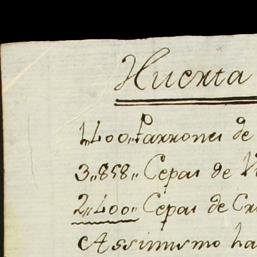 Huerta
1,,400,,Parrones de
3,,858,, Cepas de Vi
2,,400,, Cepas de Cr
Assimismo ha